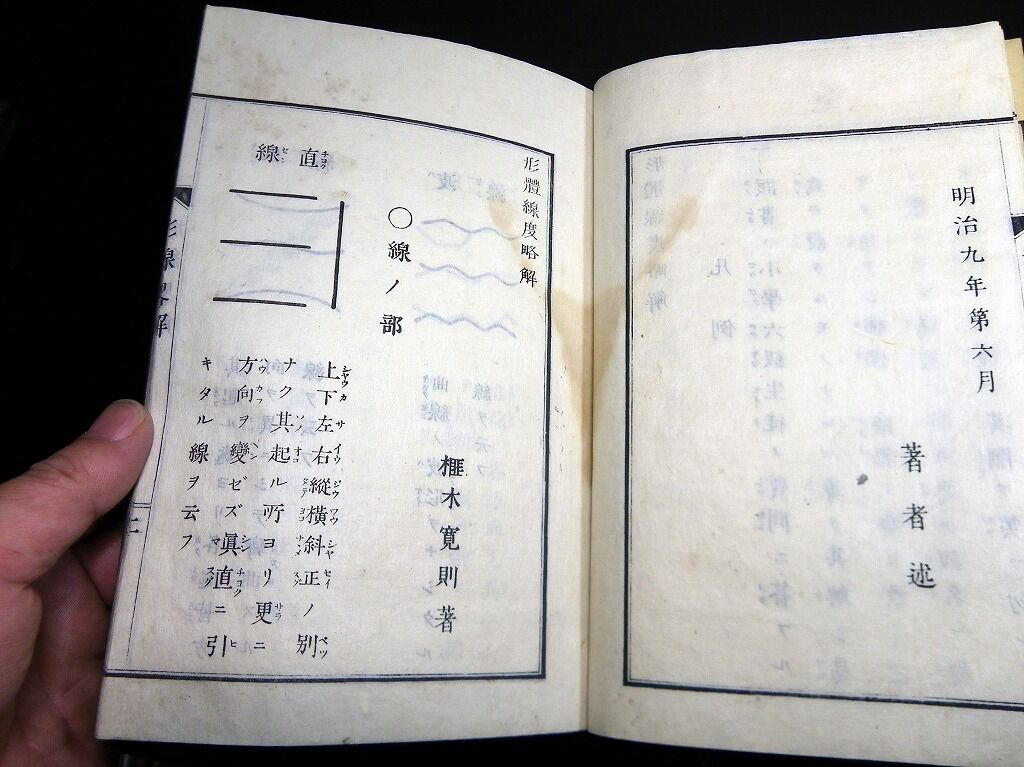 明治九年第六月
著者述
形體線度略解
榧木寬則著
○線ノ部
直線
上下左右縱橫斜正ノ別
ナク其起ル所ヨリ更ニ
方向ヲ變ゼズ眞直ニ引
キタル線ヲ云フ